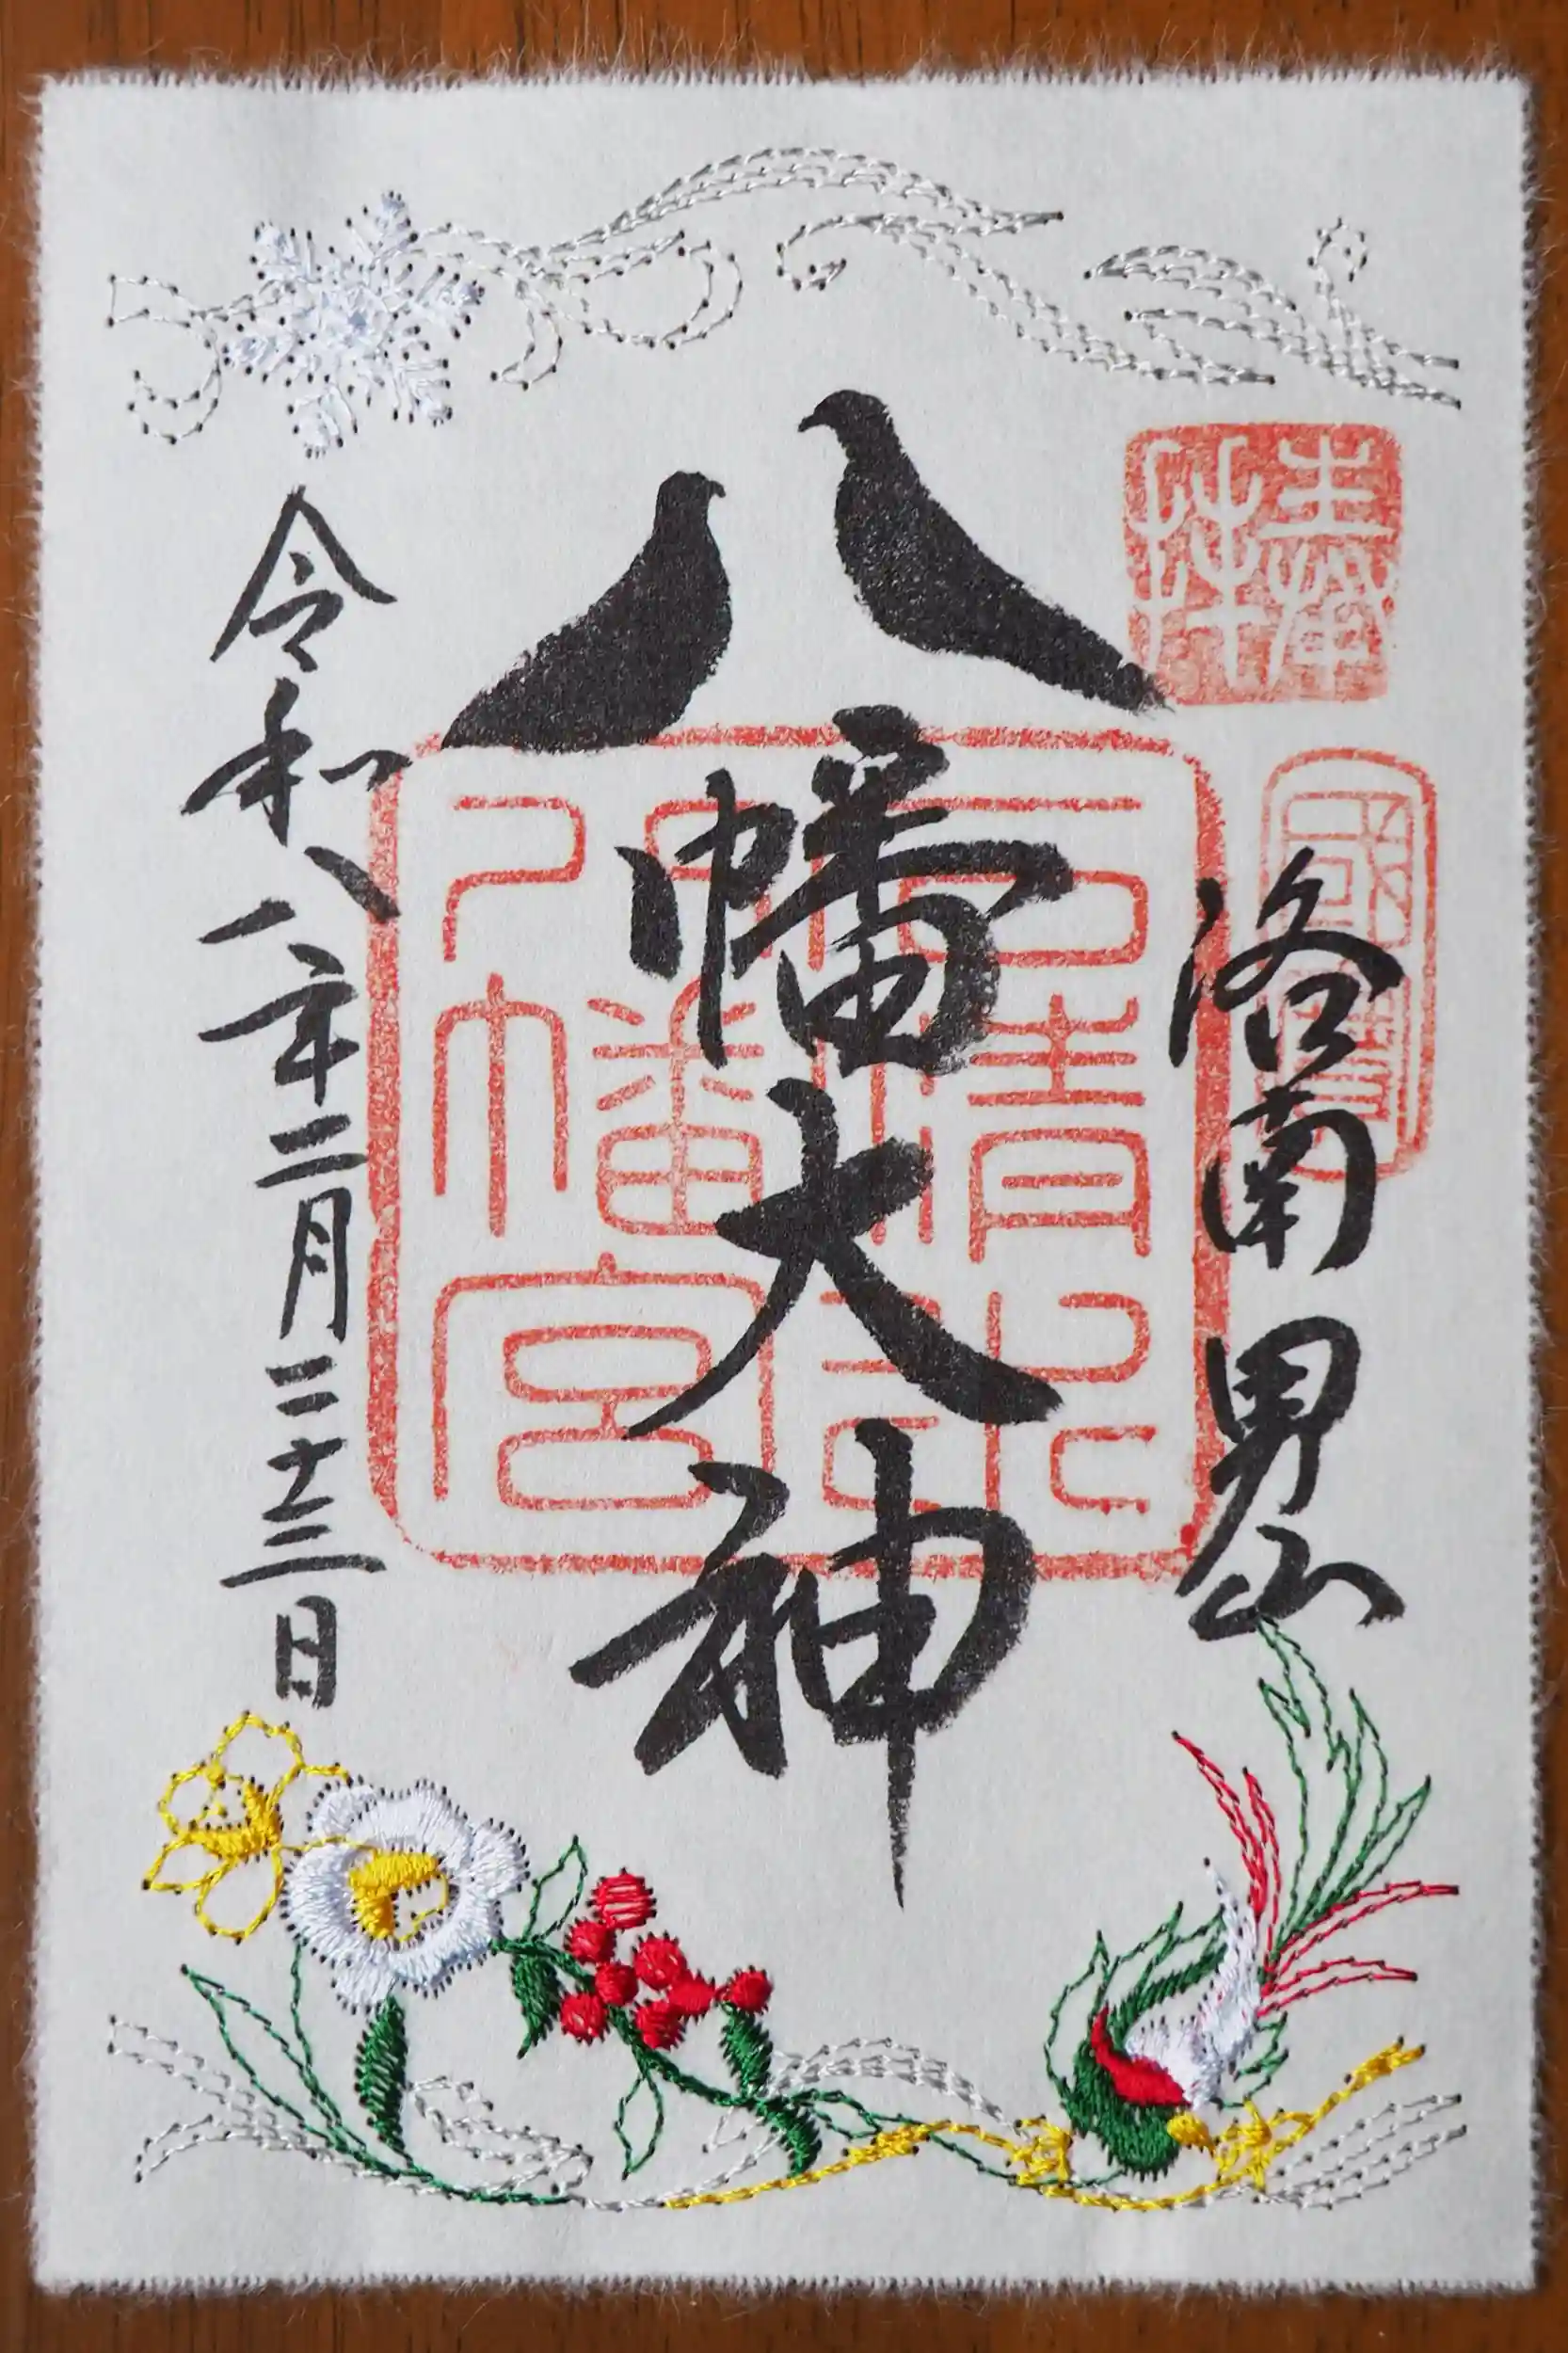 奉拝
國寶
洛南 男山
八幡大神
石清水八幡宮印
令和八年二月二十三日